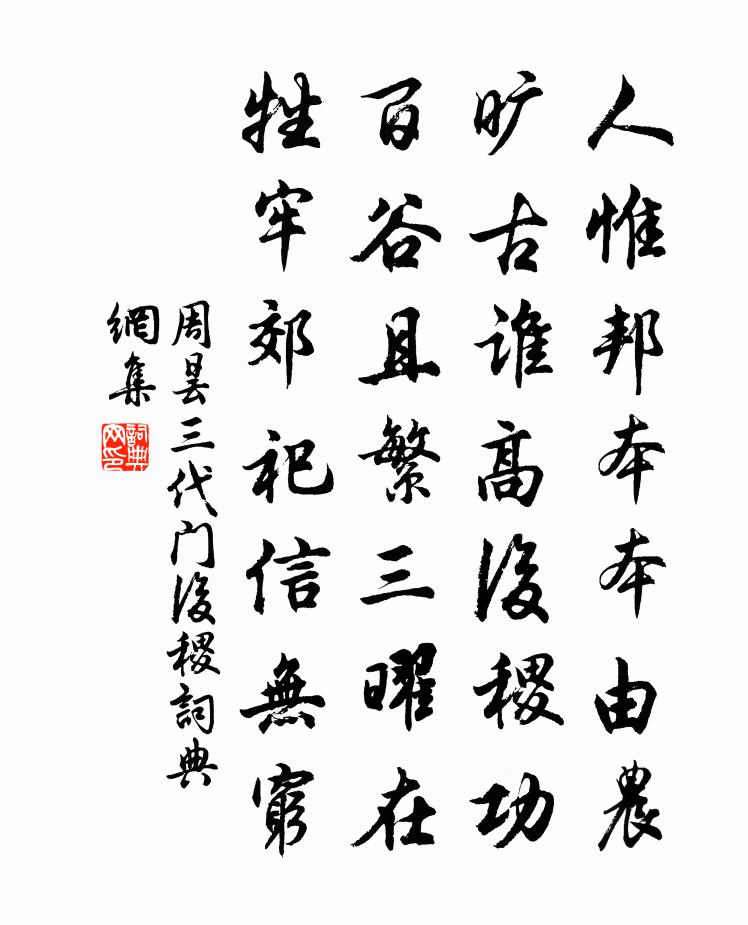 人惟邦本本由農
旷古谁高後稷功
百谷且繁三曜在
牲牢郊祀信無窮
周昙三代门後稷詞典
網集
詞典
网印